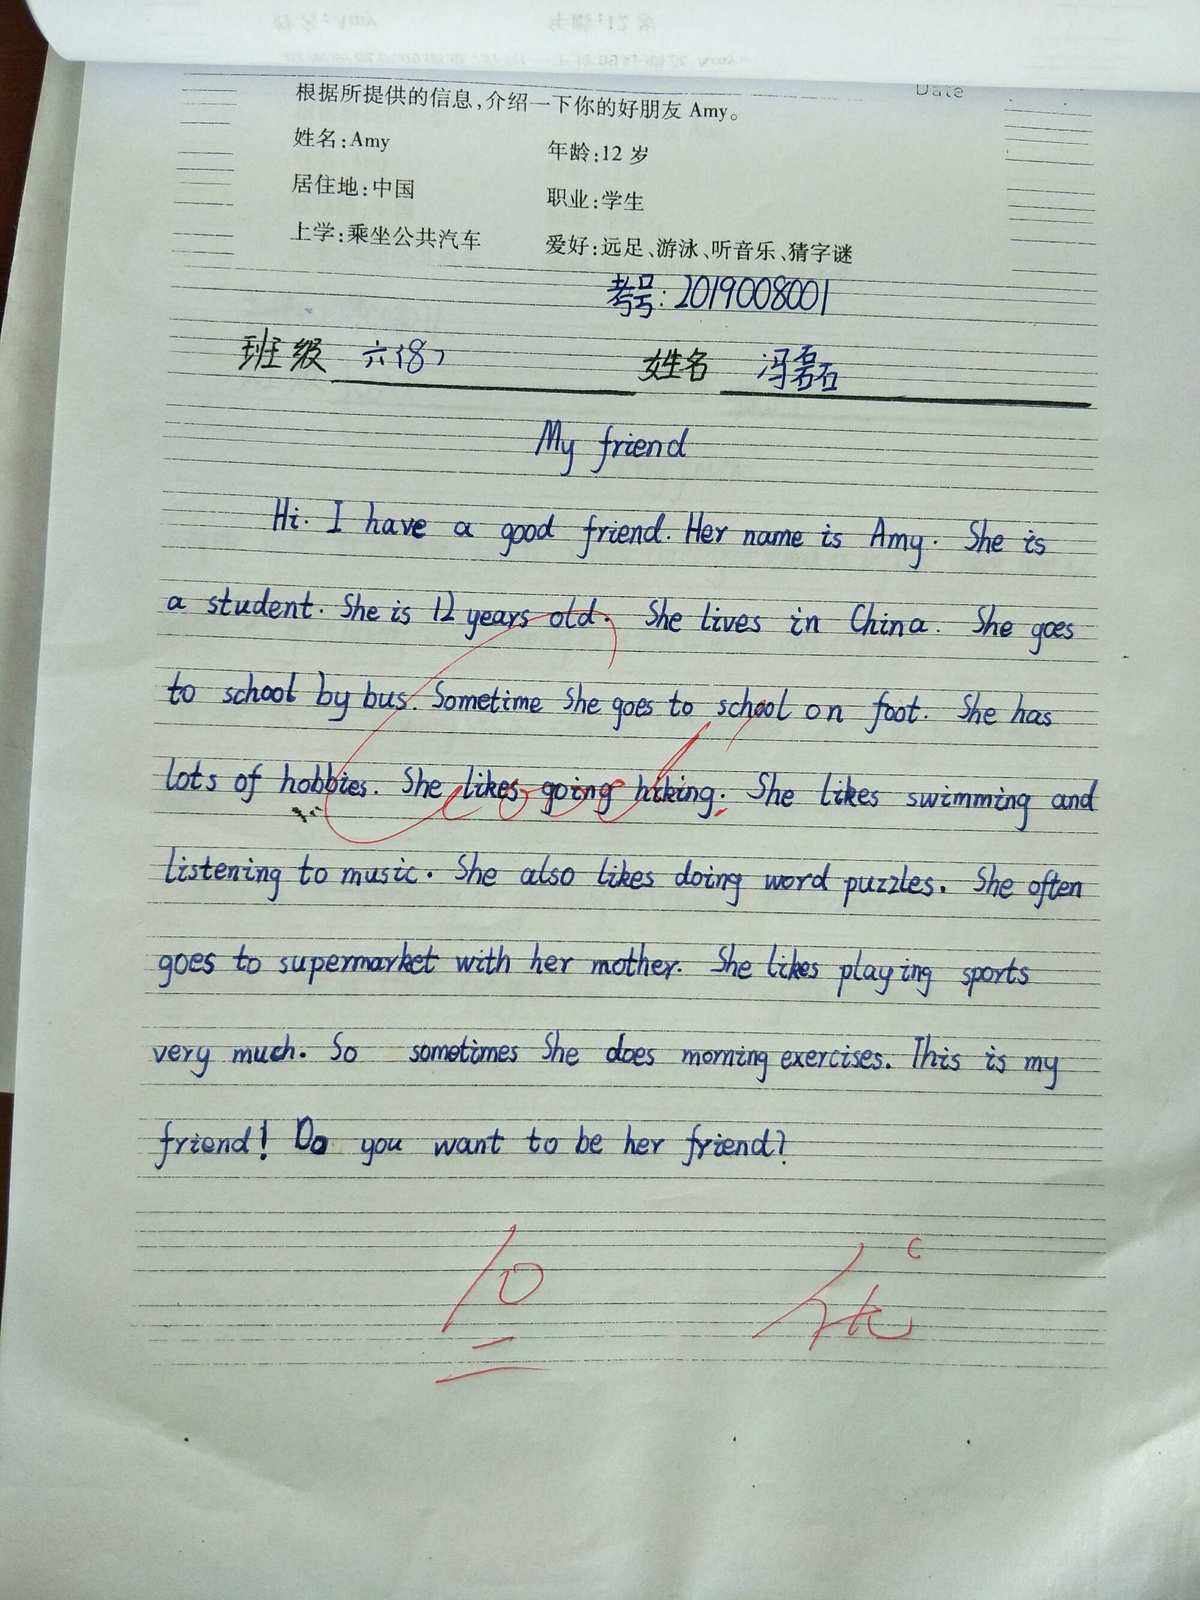 Date
根据所提供的信息,介绍一下你的好朋友 Amy。
姓名:Amy 年龄:12 岁
居住地:中国 职业:学生
上学:乘坐公共汽车 爱好:远足、游泳、听音乐、猜字谜
考号:2019008001
班级 六(8) 姓名 冯磊
My friend
Hi. I have a good friend. Her name is Amy. She is
a student. She is 12 years old. She lives in China. She goes
to school by bus. Sometime She goes to school on foot. She has
lots of hobbies. She likes going hiking. She likes swimming and
listening to music. She also likes doing word puzzles. She often
goes to supermarket with her mother. She likes playing sports
very much. So sometimes She does morning exercises. This is my
friend! Do you want to be her friend?
10 优